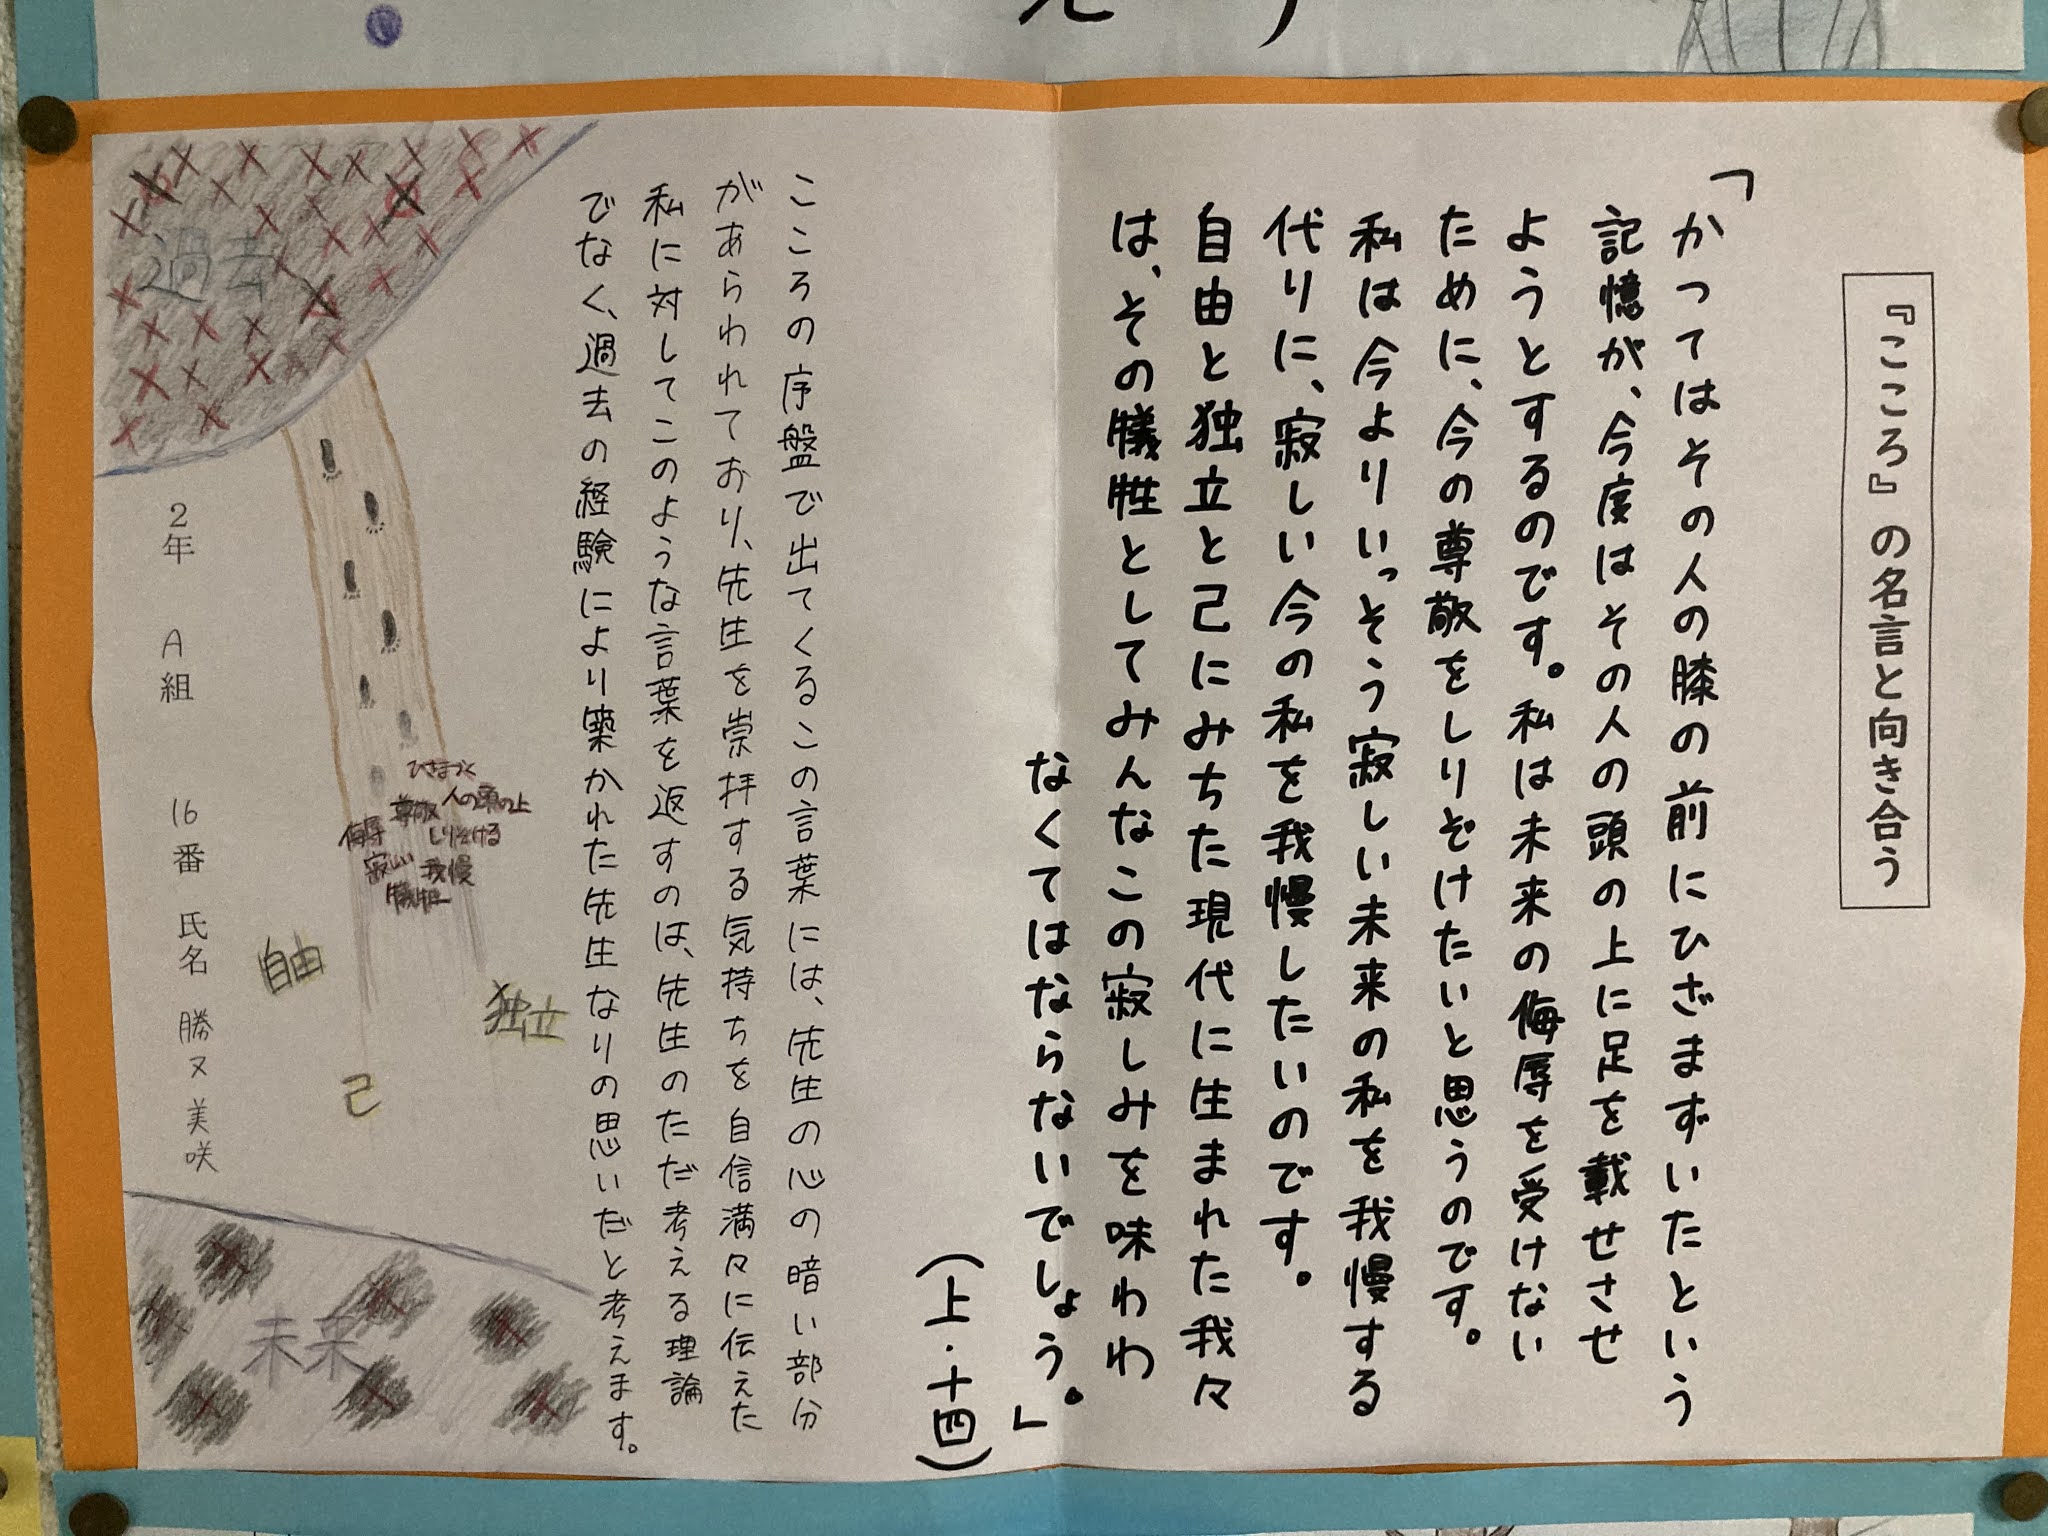 『こころ』の名言と向き合う
「かつてはその人の膝の前にひざまずいたという
記憶が、今度はその人の頭の上に足を載せさせ
ようとするのです。私は未来の侮辱を受けない
ために、今の尊敬をしりぞけたいと思うのです。
私は今よりいっそう寂しい未来の私を我慢する
代りに、寂しい今の私を我慢したいのです。
自由と独立と己にみちた現代に生まれた我々
は、その犠牲としてみんなこの寂しみを味わわ
なくてはならないでしょう。」
(上・十四)
こころの序盤で出てくるこの言葉には、先生の心の暗い部分
があらわれており、先生を崇拝する気持ちを自信満々に伝えた
私に対してこのような言葉を返すのは、先生のただ考える理論
でなく、過去の経験により築かれた先生なりの思いだと考えます。
過去
ひざまづく
人の頭の上
尊敬
しりぞける
侮辱
我慢
寂しい
犠牲
自由
独立
己
未来
2年 A組 16番 氏名 勝又美咲